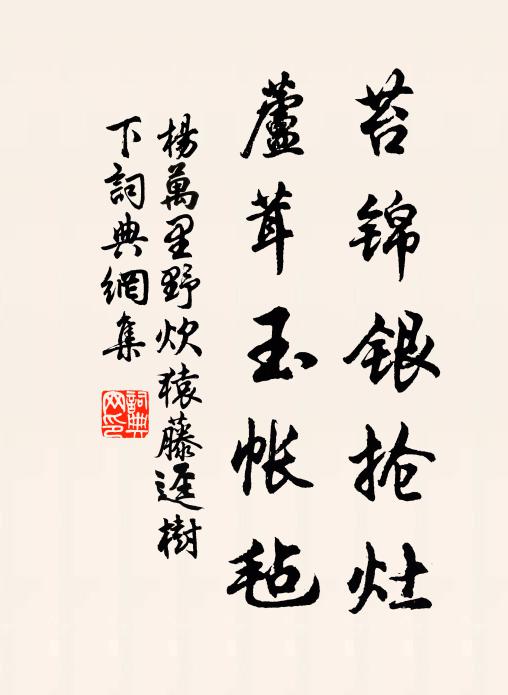 苔锦银抢灶
蘆茸玉帐毡
楊萬里野炊猿藤逕樹
下詞典網集
詞典
网印